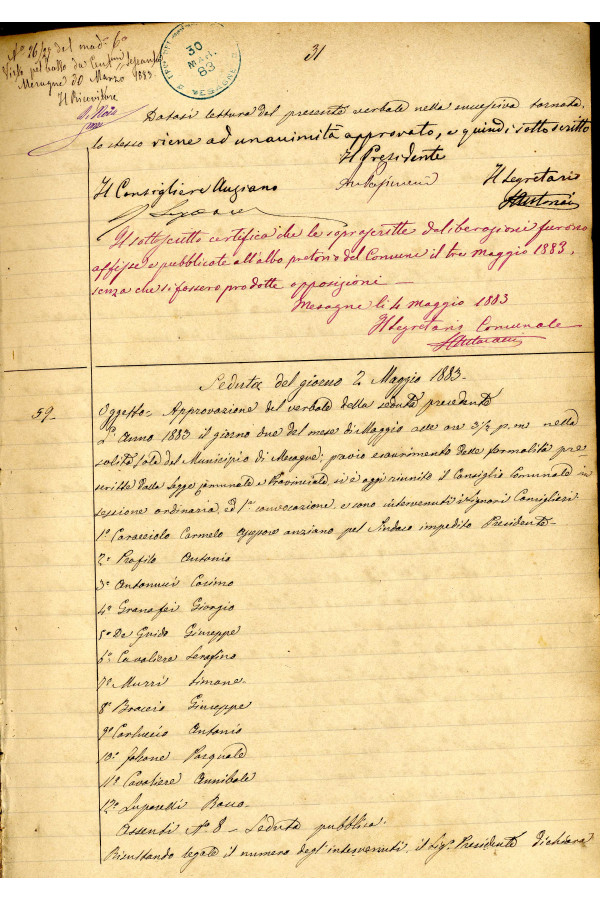 N° 26/27 del mod° 60
Visto pel bollo da Centesimi Sessanta
Mesagne 30 Marzo 1883
Il Ricevitore
30
MAR
83
MESAGNE
31
Datasi lettura del presente verbale nella successiva tornata
lo stesso viene ad unanimità approvato, e quindi sottoscritto
Il Presidente
Il Consigliere Anziano
Il Segretario
Il sottoscritto certifica che le soprascritte deliberazioni furono
affisse e pubblicate all'albo pretorio del Comune il tre maggio 1883,
senza che si fossero prodotte opposizioni —
Mesagne li 4 maggio 1883
Il Segretario Comunale
Seduta del giorno 2 Maggio 1883.
59
Oggetto = Approvazione del verbale della seduta precedente
L'Anno 1883 il giorno due del mese di Maggio alle ore 3 1/2 p.m. nella
solita sala del Municipio di Mesagne; previo esaurimento delle formalità pre
scritte dalla Legge Comunale e Provinciale si è oggi riunito il Consiglio Comunale in
sessione ordinaria, ed 1ª convocazione, e sono intervenuti i Signori Consiglieri
1° Caracciolo Carmelo assessore anziano pel Sindaco impedito Presidente
2° Profilo Antonio
3° Antonucci Cosimo
4° Granafei Giorgio
5° De Guido Giuseppe
6° Cavaliere Serafino
7° Murri Simone
8° Braccio Giuseppe
9° Carluccio Antonio
10° Falcone Pasquale
11° Cavaliere Annibale
12° Luparelli Rocco
Assenti N° 8 — Seduta pubblica
Risultando legale il numero degl'intervenuti, il Sig. Presidente dichiara